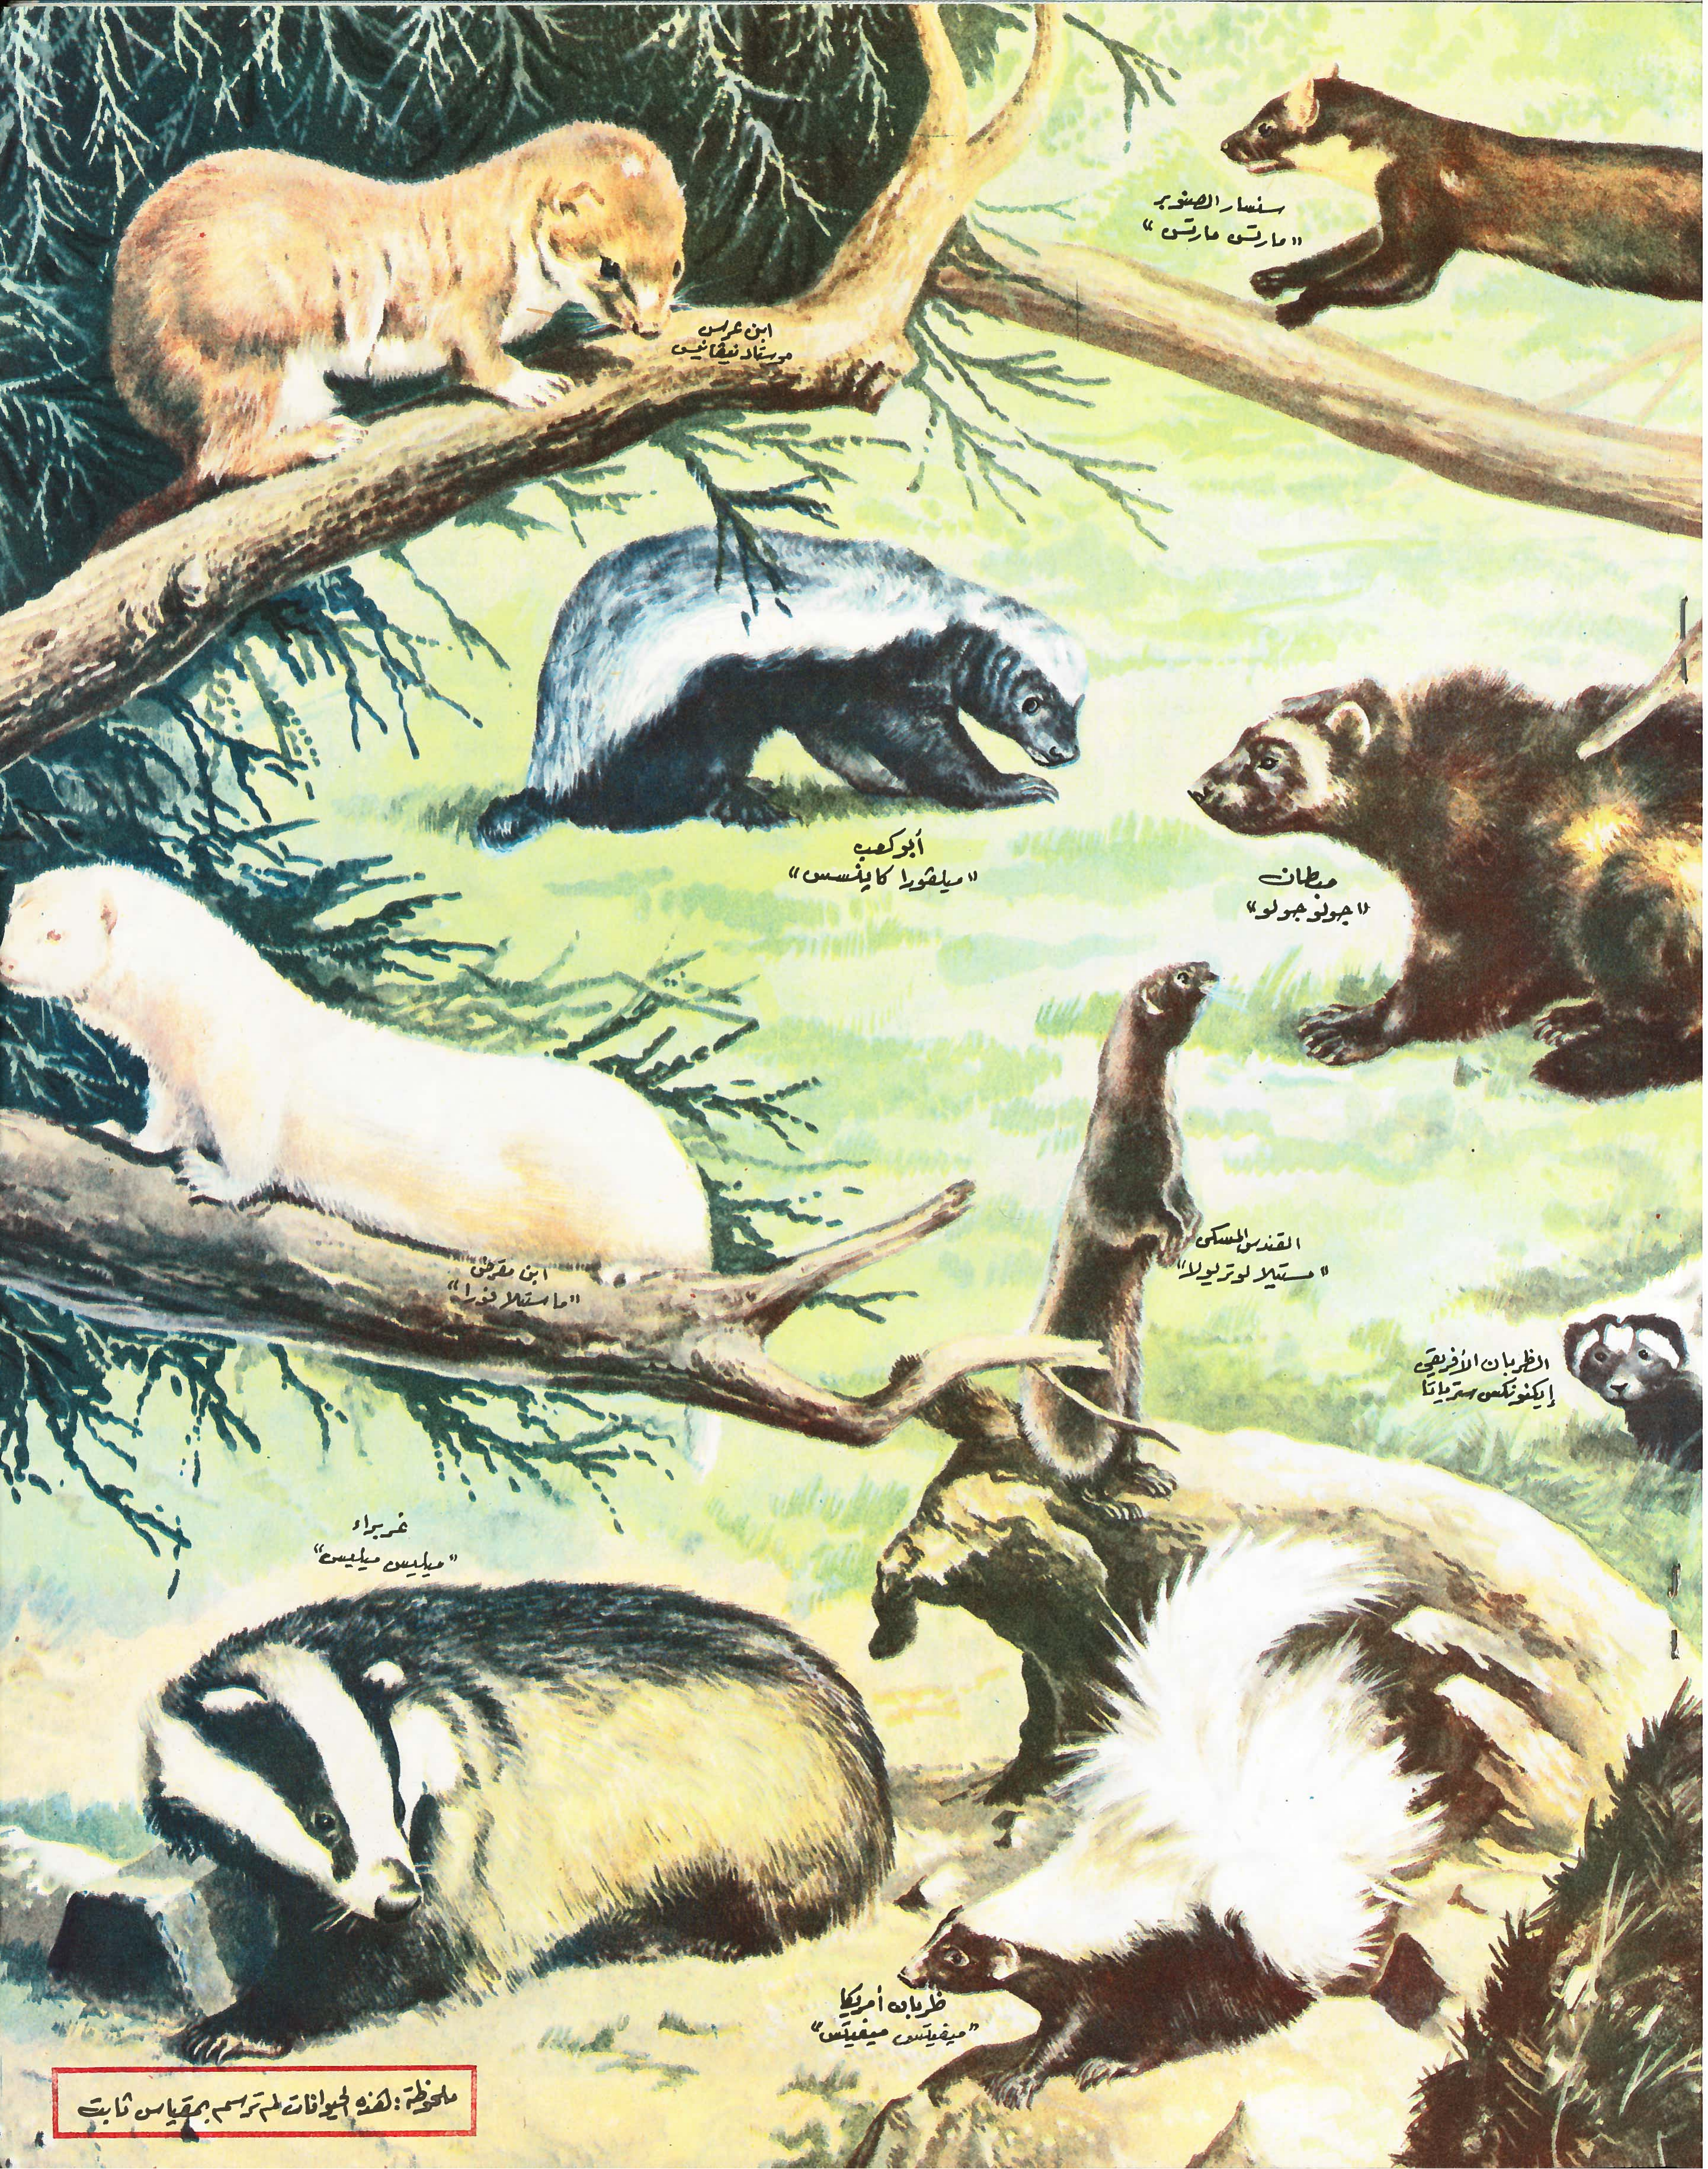 سنسار الصنوبر
"مارتس مارتس"
ابن عرس
موستلا نيفاليس
أبو كعب
"ميلفورا كاپنسس"
"جولو جولو"
القندس المسكى
"مستيلا لوتريولا"
ابن مقرض
"ماستيلا فورا"
الظربان الأفريقي
إيكتونكس سترياتا
غربراء
"ميليس ميليس"
ظربان أمريكا
"ميفيتس ميفيتس"
ملحوظة: هذه الحيوانات لم ترسم بمقياس ثابت